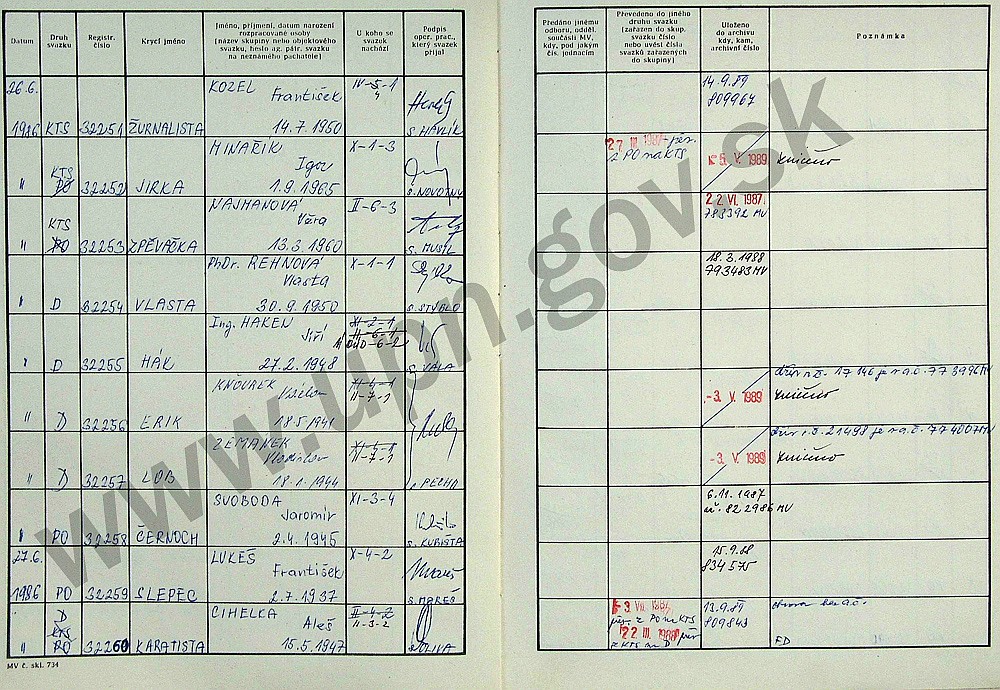 Datum
Druh svazku
Registr. číslo
Krycí jméno
Jméno, příjmení, datum narození
rozpracované osoby
(název skupiny nebo objektového
svazku, heslo ag. pátr. svazku
na neznámého pachatele)
U koho se
svazek
nachází
Podpis
oper. prac.,
který svazek
přijal
Předáno jinému
odboru, odděl.
součásti MV,
kdy, pod jakým
čís. jednacím
Převedeno do jiného
druhu svazku
(zařazen do skup.
svazku číslo
nebo uvést čísla
svazků zařazených
do skupiny)
Uloženo
do archivu
kdy, kam,
archivní číslo
Poznámka
26.6. KOZEL IV-5-1 14.9.89
František 4 809967
1986 KTS 32251 ŽURNALISTA 14.7.1950 s. HAVLÍK
MINAŘÍK X-1-3 27 III. 1987
KTS Igor z PO na KTS -5. V. 1989 zničeno
" PO 32252 JIRKA 1.9.1965 s. NOVOTNÝ
NAJMANOVÁ II-6-3 22 VI. 1987
KTS Věra 783392 MV
" PO 32253 ZPĚVAČKA 13.3.1960 s. MUSIL
PhDr. ŘEHNOVÁ X-1-1 18.3.1988
Vlasta 793483 MV
" D 32254 VLASTA 30.9.1950 s. STÝBLO
Ing. HAKEN XI-2-1
Jiří II-6-1
" D 32255 HÁK 27.2.1948 s. VÁLA
KŇOUREK XI-4-1 dův. r. č. 17146 je v a.č. 773996 MV
II-7-1 -3. V. 1989 zničeno
" D 32256 ERIK 18.5.1941
ZEMÁNEK XI-4-1 dův. r. č. 21498 je v a.č. 774007 MV
Vladislav II-7-1 -3. V. 1989 zničeno
" D 32257 LOB 18.1.1944 s. PECHA
SVOBODA XI-3-4 6.11.1987
Jaromír 822986 MV
" PO 32258 ČERNOCH 2.4.1945 s. KUBIŠTA
27.6. LUKEŠ X-4-2 15.9.88
František 834575
1986 PO 32259 SLEPEC 2.7.1937 s. MAREŠ
D CIHELKA II-4-2 -3. VII. 1987 13.9.89
KTS Aleš II-3-2 z PO na KTS 809843
" PO 32260 KARATISTA 15.5.1947 s. OLIVA 22 III. 1988 z KTS na D FD
MV č. skl. 734
www.upn.gov.sk